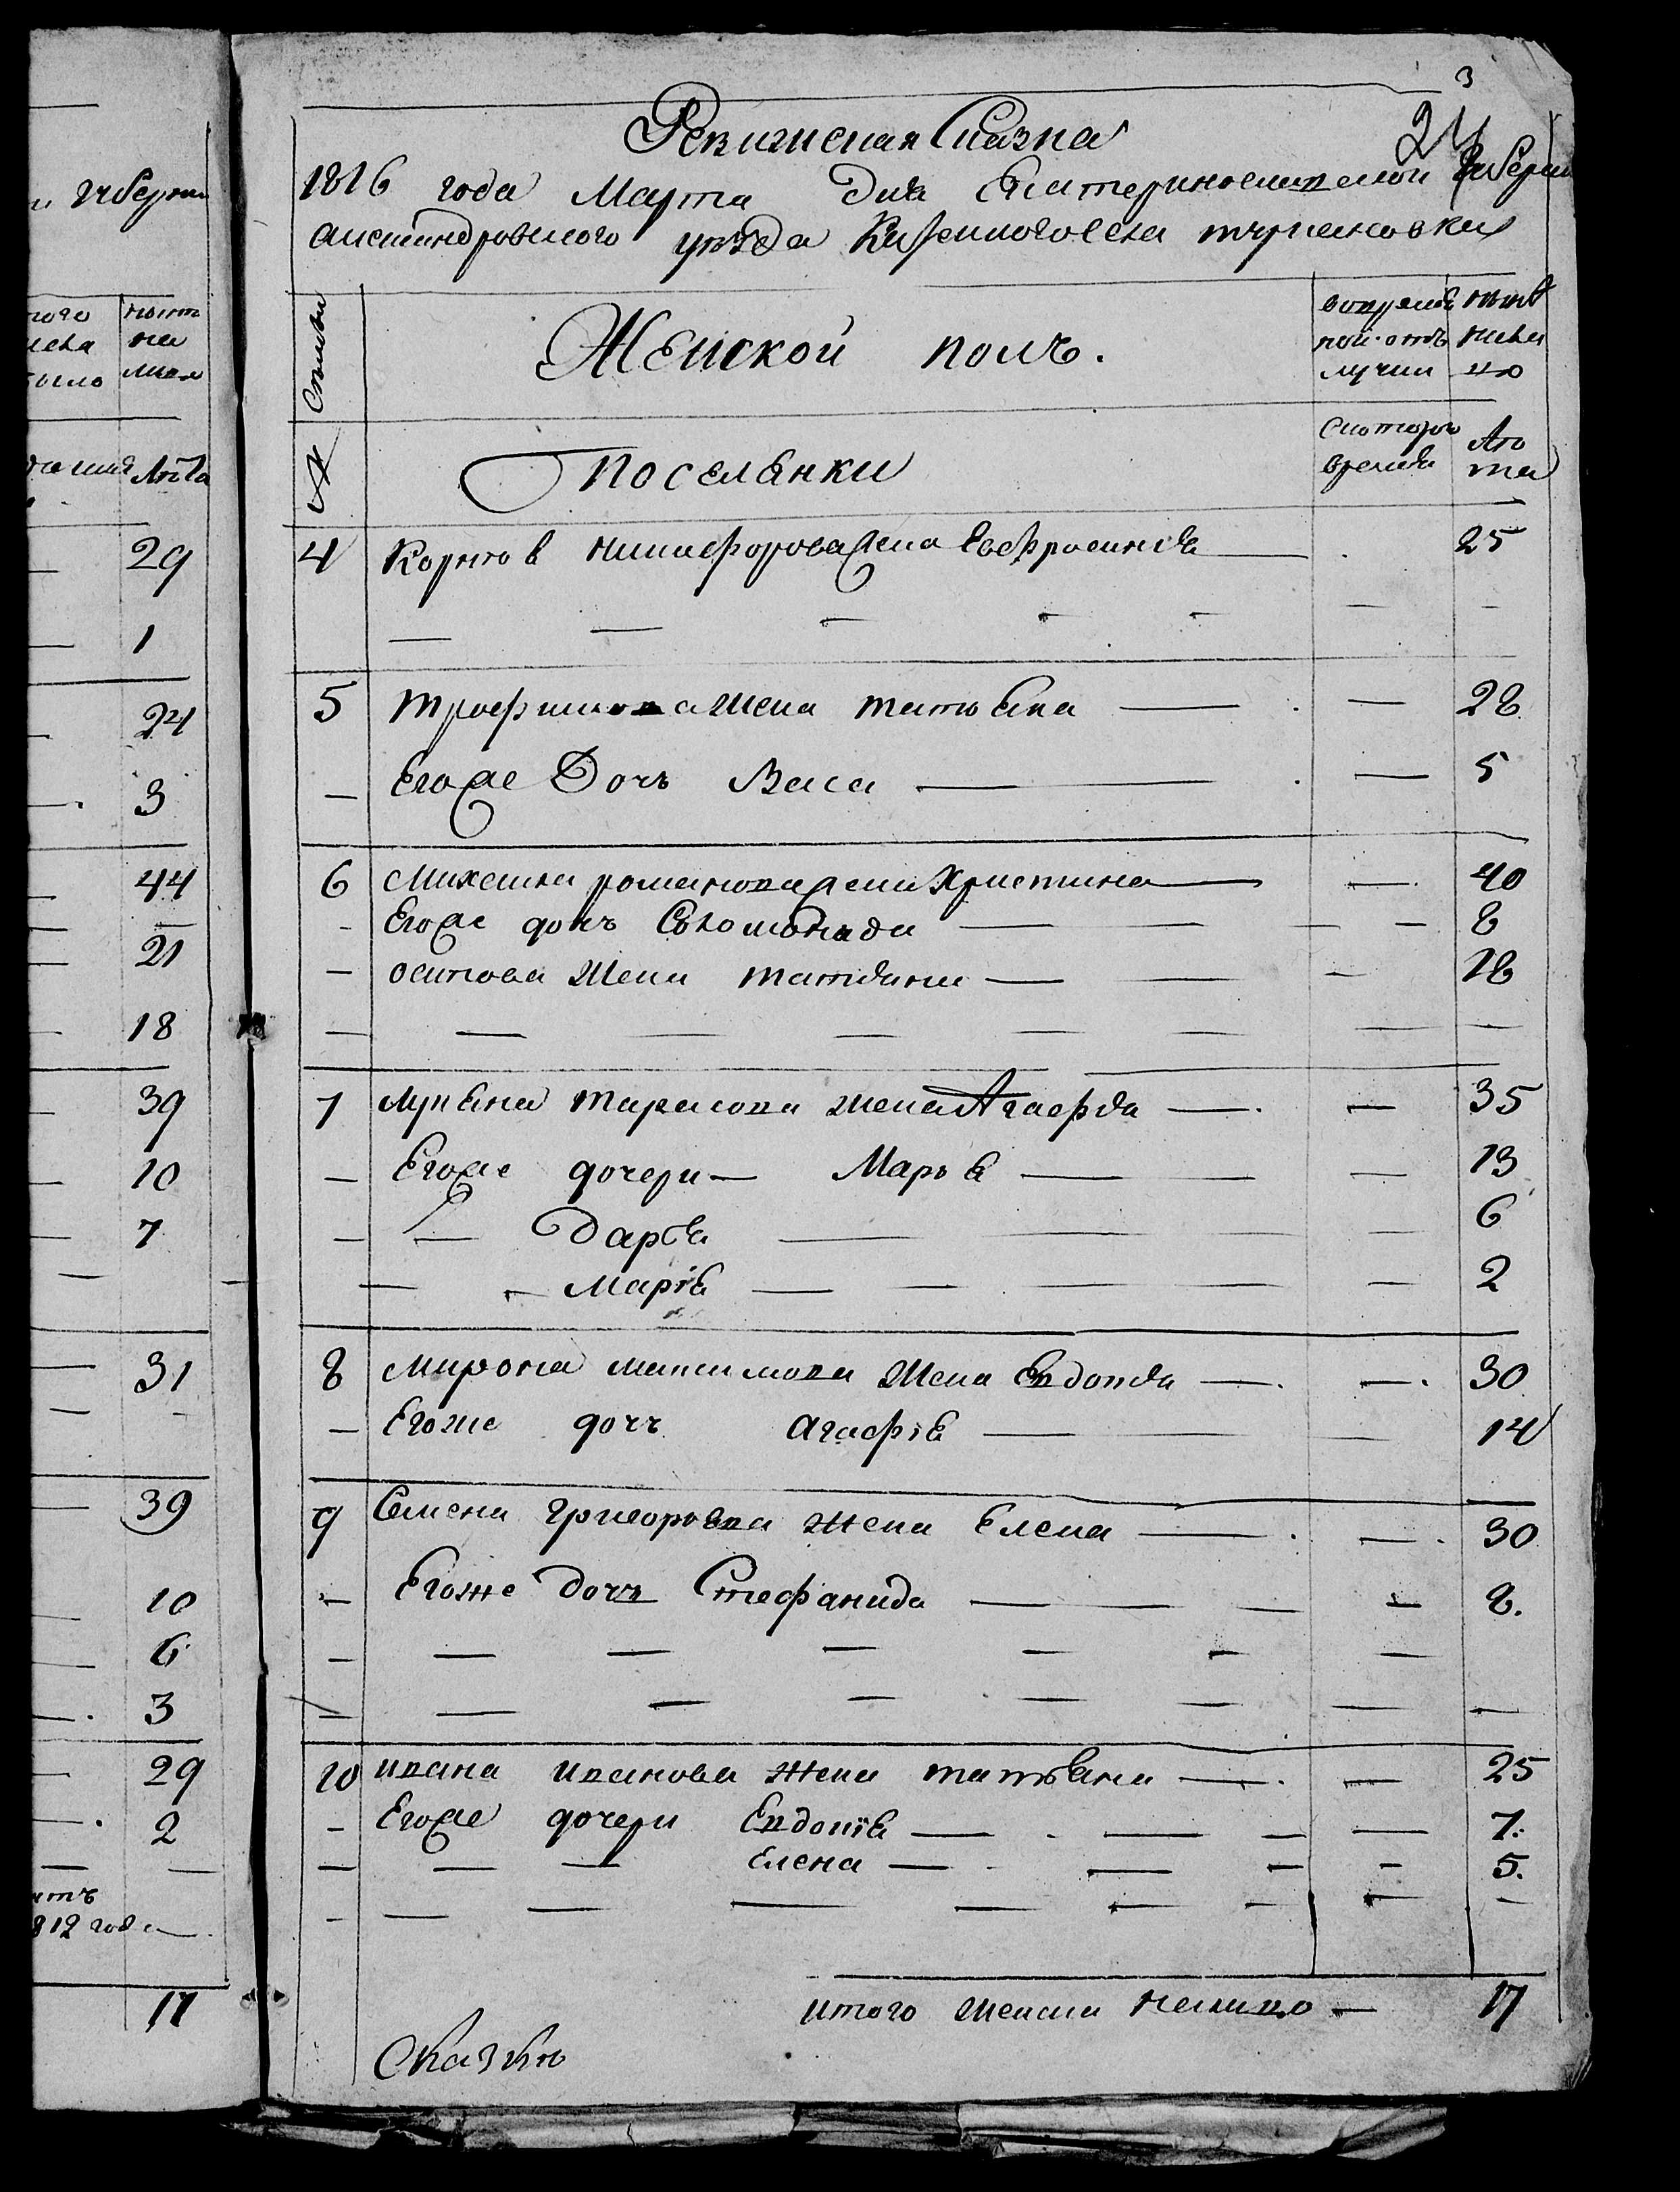 3
24
Ревижская Сказка
1816 года Марта дня Екатеринославской губернии
александровского уезда Казенного села туркеновки
Семьи
Женской полъ.
вовремен ной отлучки
ныне налицо
№
Поселянки
Скоторого времени
Лета
4 Корнея никифорова жена Евфросиния — . 25
— — — — — — —
5 трофима жена татьяна — . — 28
— Егоже Дочь Васа — . — 5
6 Михайла романова жена Христина — — . 40
- Егоже дочъ Соломонида — — — — 8
- осипова жена татияна — — — 18
— — — — — — — —
7 лукяна тарасова жена Агафия — . — 35
— Егоже дочери — Марья — — — 13
— — Дария — — — 6
— - Мария — — — — 2
8 мирона максимова жена Евдокия — . — . 30
— Егоже дочь агафия — — — 14
9 Семена григорова жена Елена — . — . 30
- Егоже дочь Стефанида — — — — 8.
- — — — — — —
— — — — — — — —
10 ивана иванова жена татьяна — . — 25
- Егоже дочери Евдокия — . — — — 7.
— — — Елена — - — — - 5.
- — — — — — — —
итого женска налицо — 17
Сказкъ
и губернии
ныне на лицо
Лета
29
1
24
3
44
21
18
39
10
7
31
39
10
6
3
29
2
812 года
17